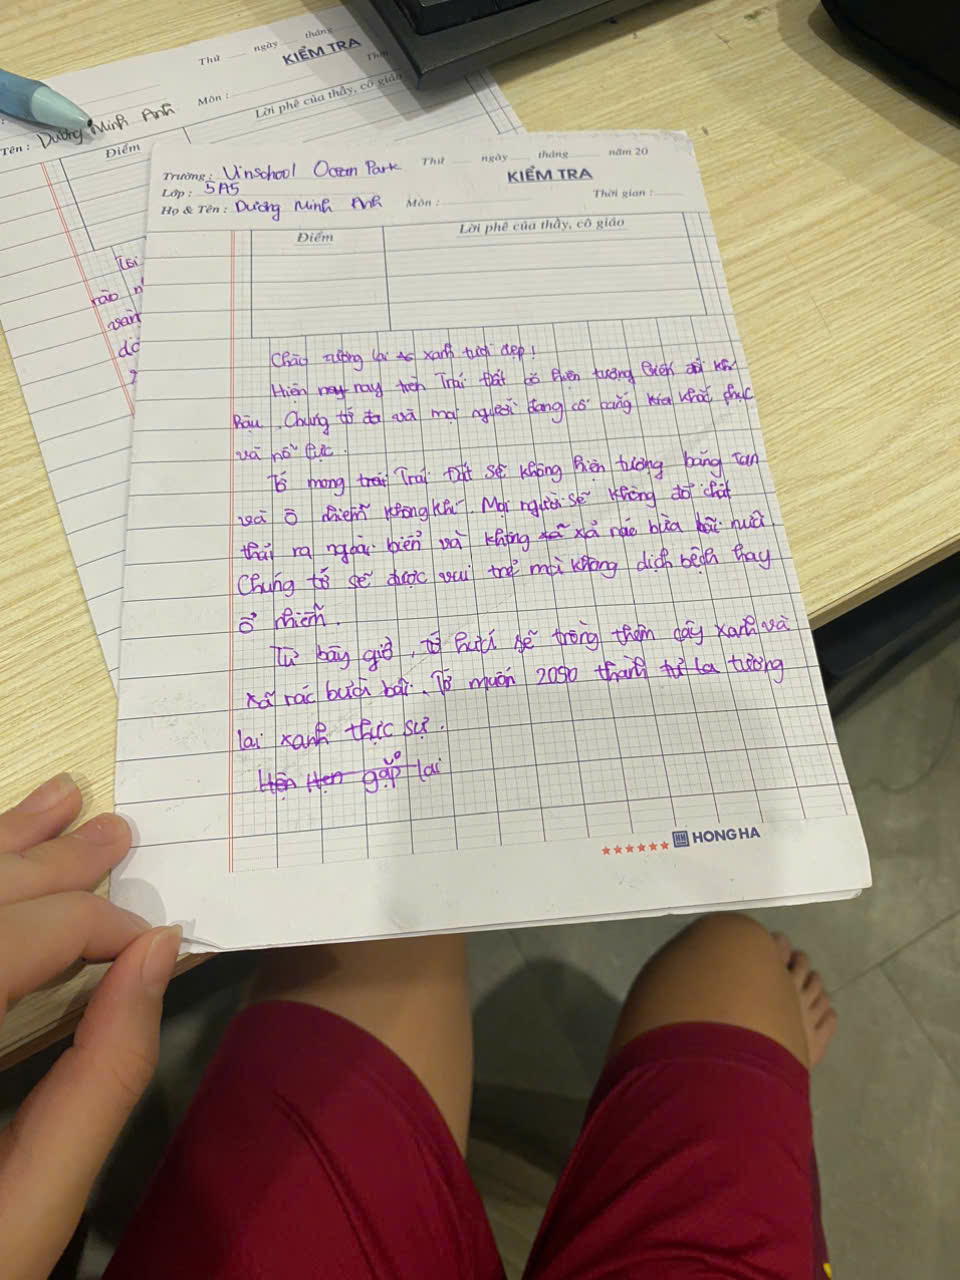 Thứ ngày tháng
KIỂM TRA
Môn :
Lời phê của thầy, cô giáo
Tên : Dương Minh Anh
Điểm
Trường : Vinschool Ocean Park
Thứ ngày tháng năm 20
Lớp : 5A5
KIỂM TRA
Họ & Tên : Dương Minh Anh
Môn :
Thời gian :
Điểm
Lời phê của thầy, cô giáo
Chào tương lai xanh tươi đẹp!
Hiện nay trên Trái Đất có hiện tượng biến đổi khí
hậu. Chúng tớ và mọi người đang cố gắng khắc phục
và nỗ lực.
Tớ mong Trái Đất sẽ không hiện tượng băng tan
và ô nhiễm không khí. Mọi người sẽ không đổ chất
thải ra ngoài biển và không xả rác bừa bãi nữa.
Chúng tớ sẽ được vui trẻ mà không dịch bệnh hay
ô nhiễm.
Từ bây giờ, tớ hứa sẽ trồng thêm cây xanh và
xã rác bừa bãi. Tớ muốn 2050 thành tương
lai xanh thực sự.
Hẹn Hẹn gặp lại
HONG HA